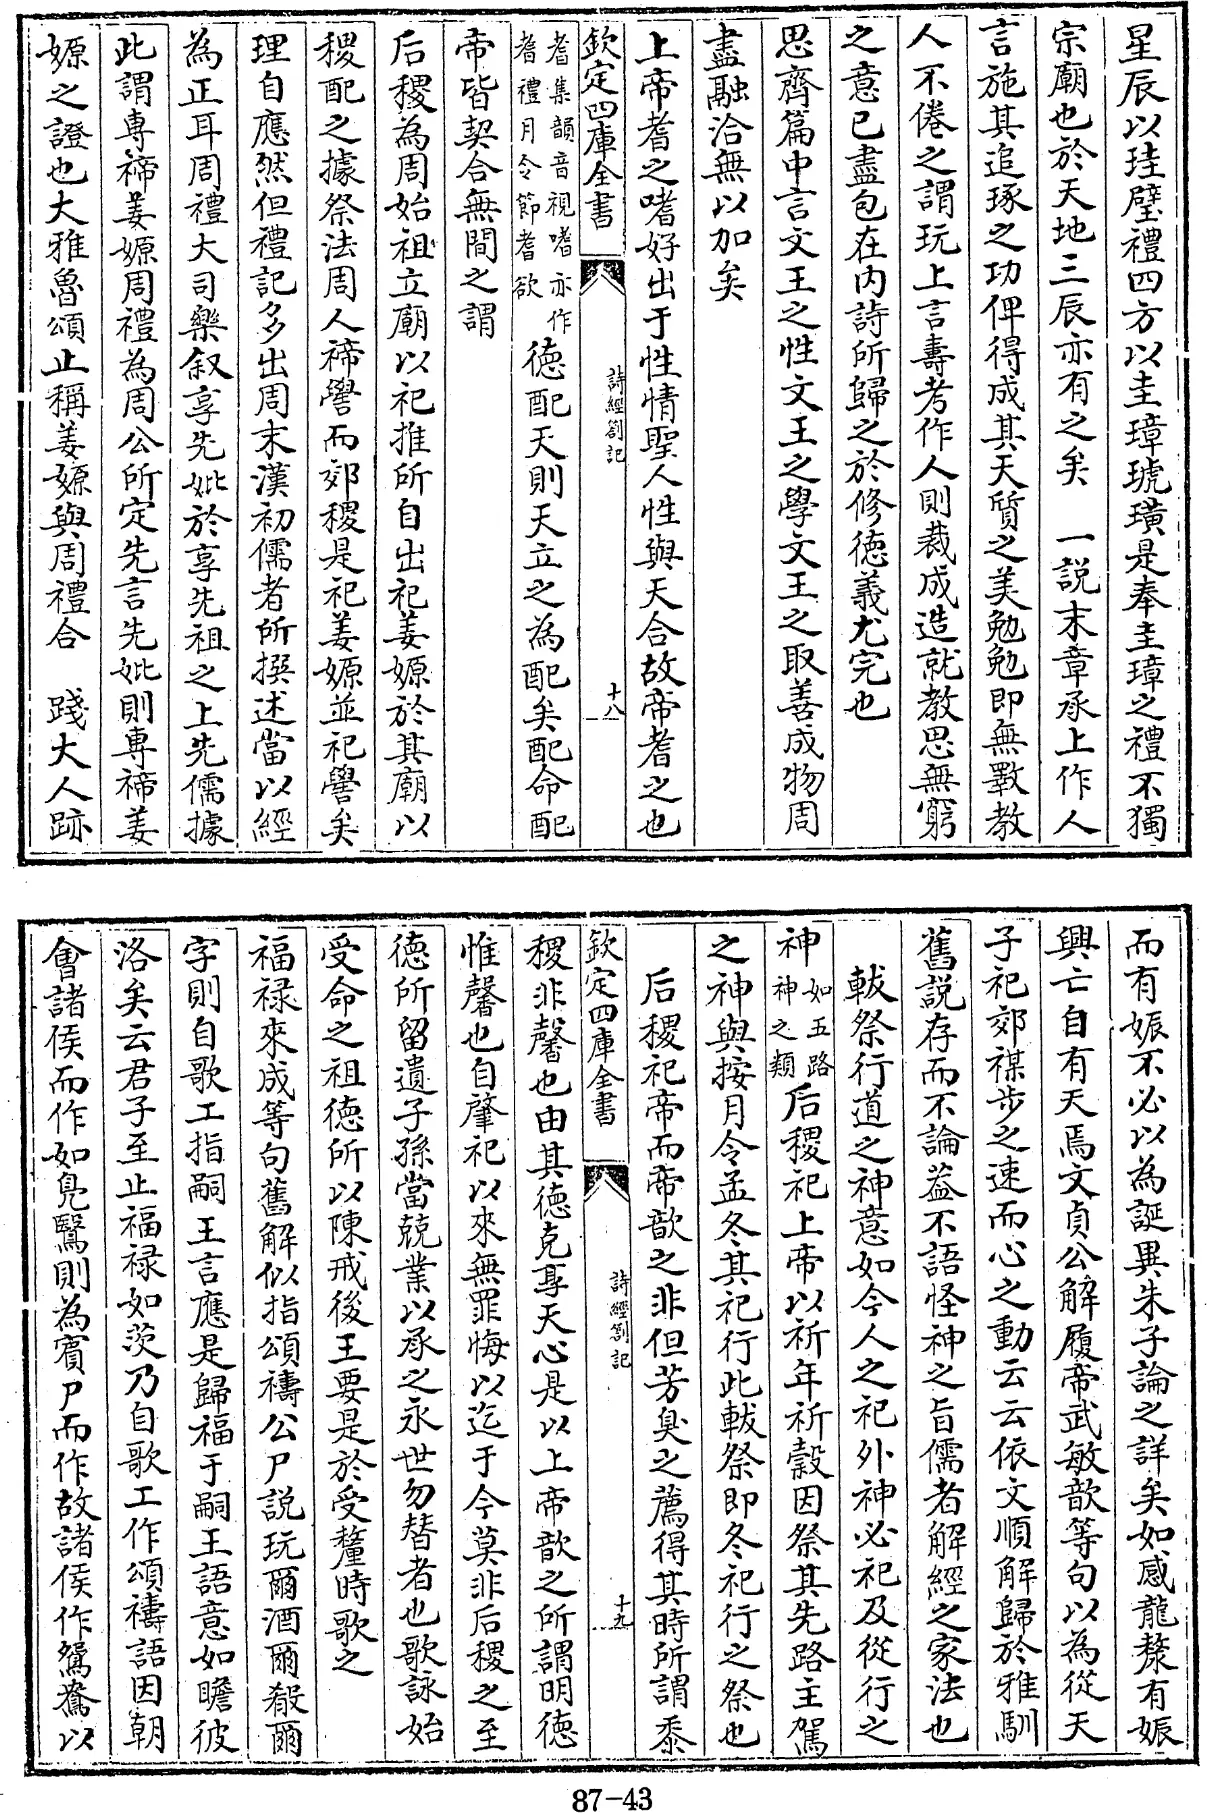 星辰以珪璧禮四方以圭璋琥璜是奉圭璋之禮不獨
宗廟也於天地三辰亦有之矣　一説末章承上作人
言施其追琢之功俾得成其天質之美勉勉即無斁教
人不倦之謂玩上言壽考作人則裁成造就教思無窮
之意已盡包在内詩所歸之於修德義尤完也
思齊篇中言文王之性文王之學文王之取善成物周
盡融洽無以加矣
上帝耆之嗜好出于性情聖人性與天合故帝耆之也
欽定四庫全書
詩經劄記
十八
耆集韻音視嗜亦作
耆禮月令節耆欲
德配天則天立之為配矣配命配
帝皆契合無間之謂
后稷為周始祖立廟以祀推所自出祀姜嫄於其廟以
稷配之據祭法周人禘嚳而郊稷是祀姜嫄並祀嚳矣
理自應然但禮記多出周末漢初儒者所撰述當以經
為正耳周禮大司樂叙享先妣於享先祖之上先儒據
此謂專禘姜嫄周禮為周公所定先言先妣則專禘姜
嫄之證也大雅魯頌止稱姜嫄與周禮合　踐大人跡
而有娠不必以為誕異朱子論之詳矣如感龍漦有娠
興亡自有天焉文貞公解履帝武敏歆等句以為從天
子祀郊禖步之速而心之動云云依文順解歸於雅馴
舊説存而不論葢不語怪神之旨儒者解經之家法也
軷祭行道之神意如今人之祀外神必祀及從行之
神
如五路
神之類
后稷祀上帝以祈年祈穀因祭其先路主駕
之神與按月令孟冬其祀行此軷祭即冬祀行之祭也
后稷祀帝而帝歆之非但芳臭之薦得其時所謂黍
欽定四庫全書
詩經劄記
十九
稷非馨也由其德克享天心是以上帝歆之所謂明德
惟馨也自肇祀以來無罪悔以迄于今莫非后稷之至
德所留遺子孫當兢業以承之永世勿替者也歌詠始
受命之祖德所以陳戒後王要是於受釐時歌之
福禄來成等句舊解似指頌禱公尸説玩爾酒爾殽爾
字則自歌工指嗣王言應是歸福于嗣王語意如瞻彼
洛矣云君子至止福禄如茨乃自歌工作頌禱語因朝
會諸侯而作如鳧鷖則為賓尸而作故諸侯作鴛鴦以
87-43